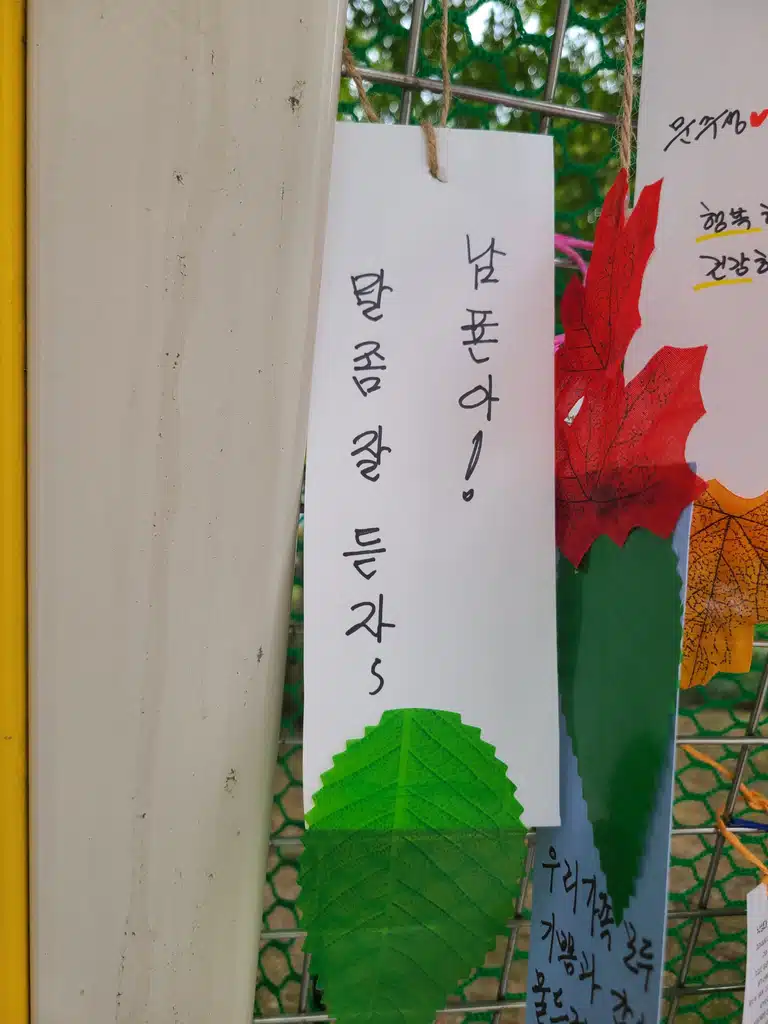 남푠아!
말 좀 잘 듣자~
행복
건강
우리 가족
기쁨과